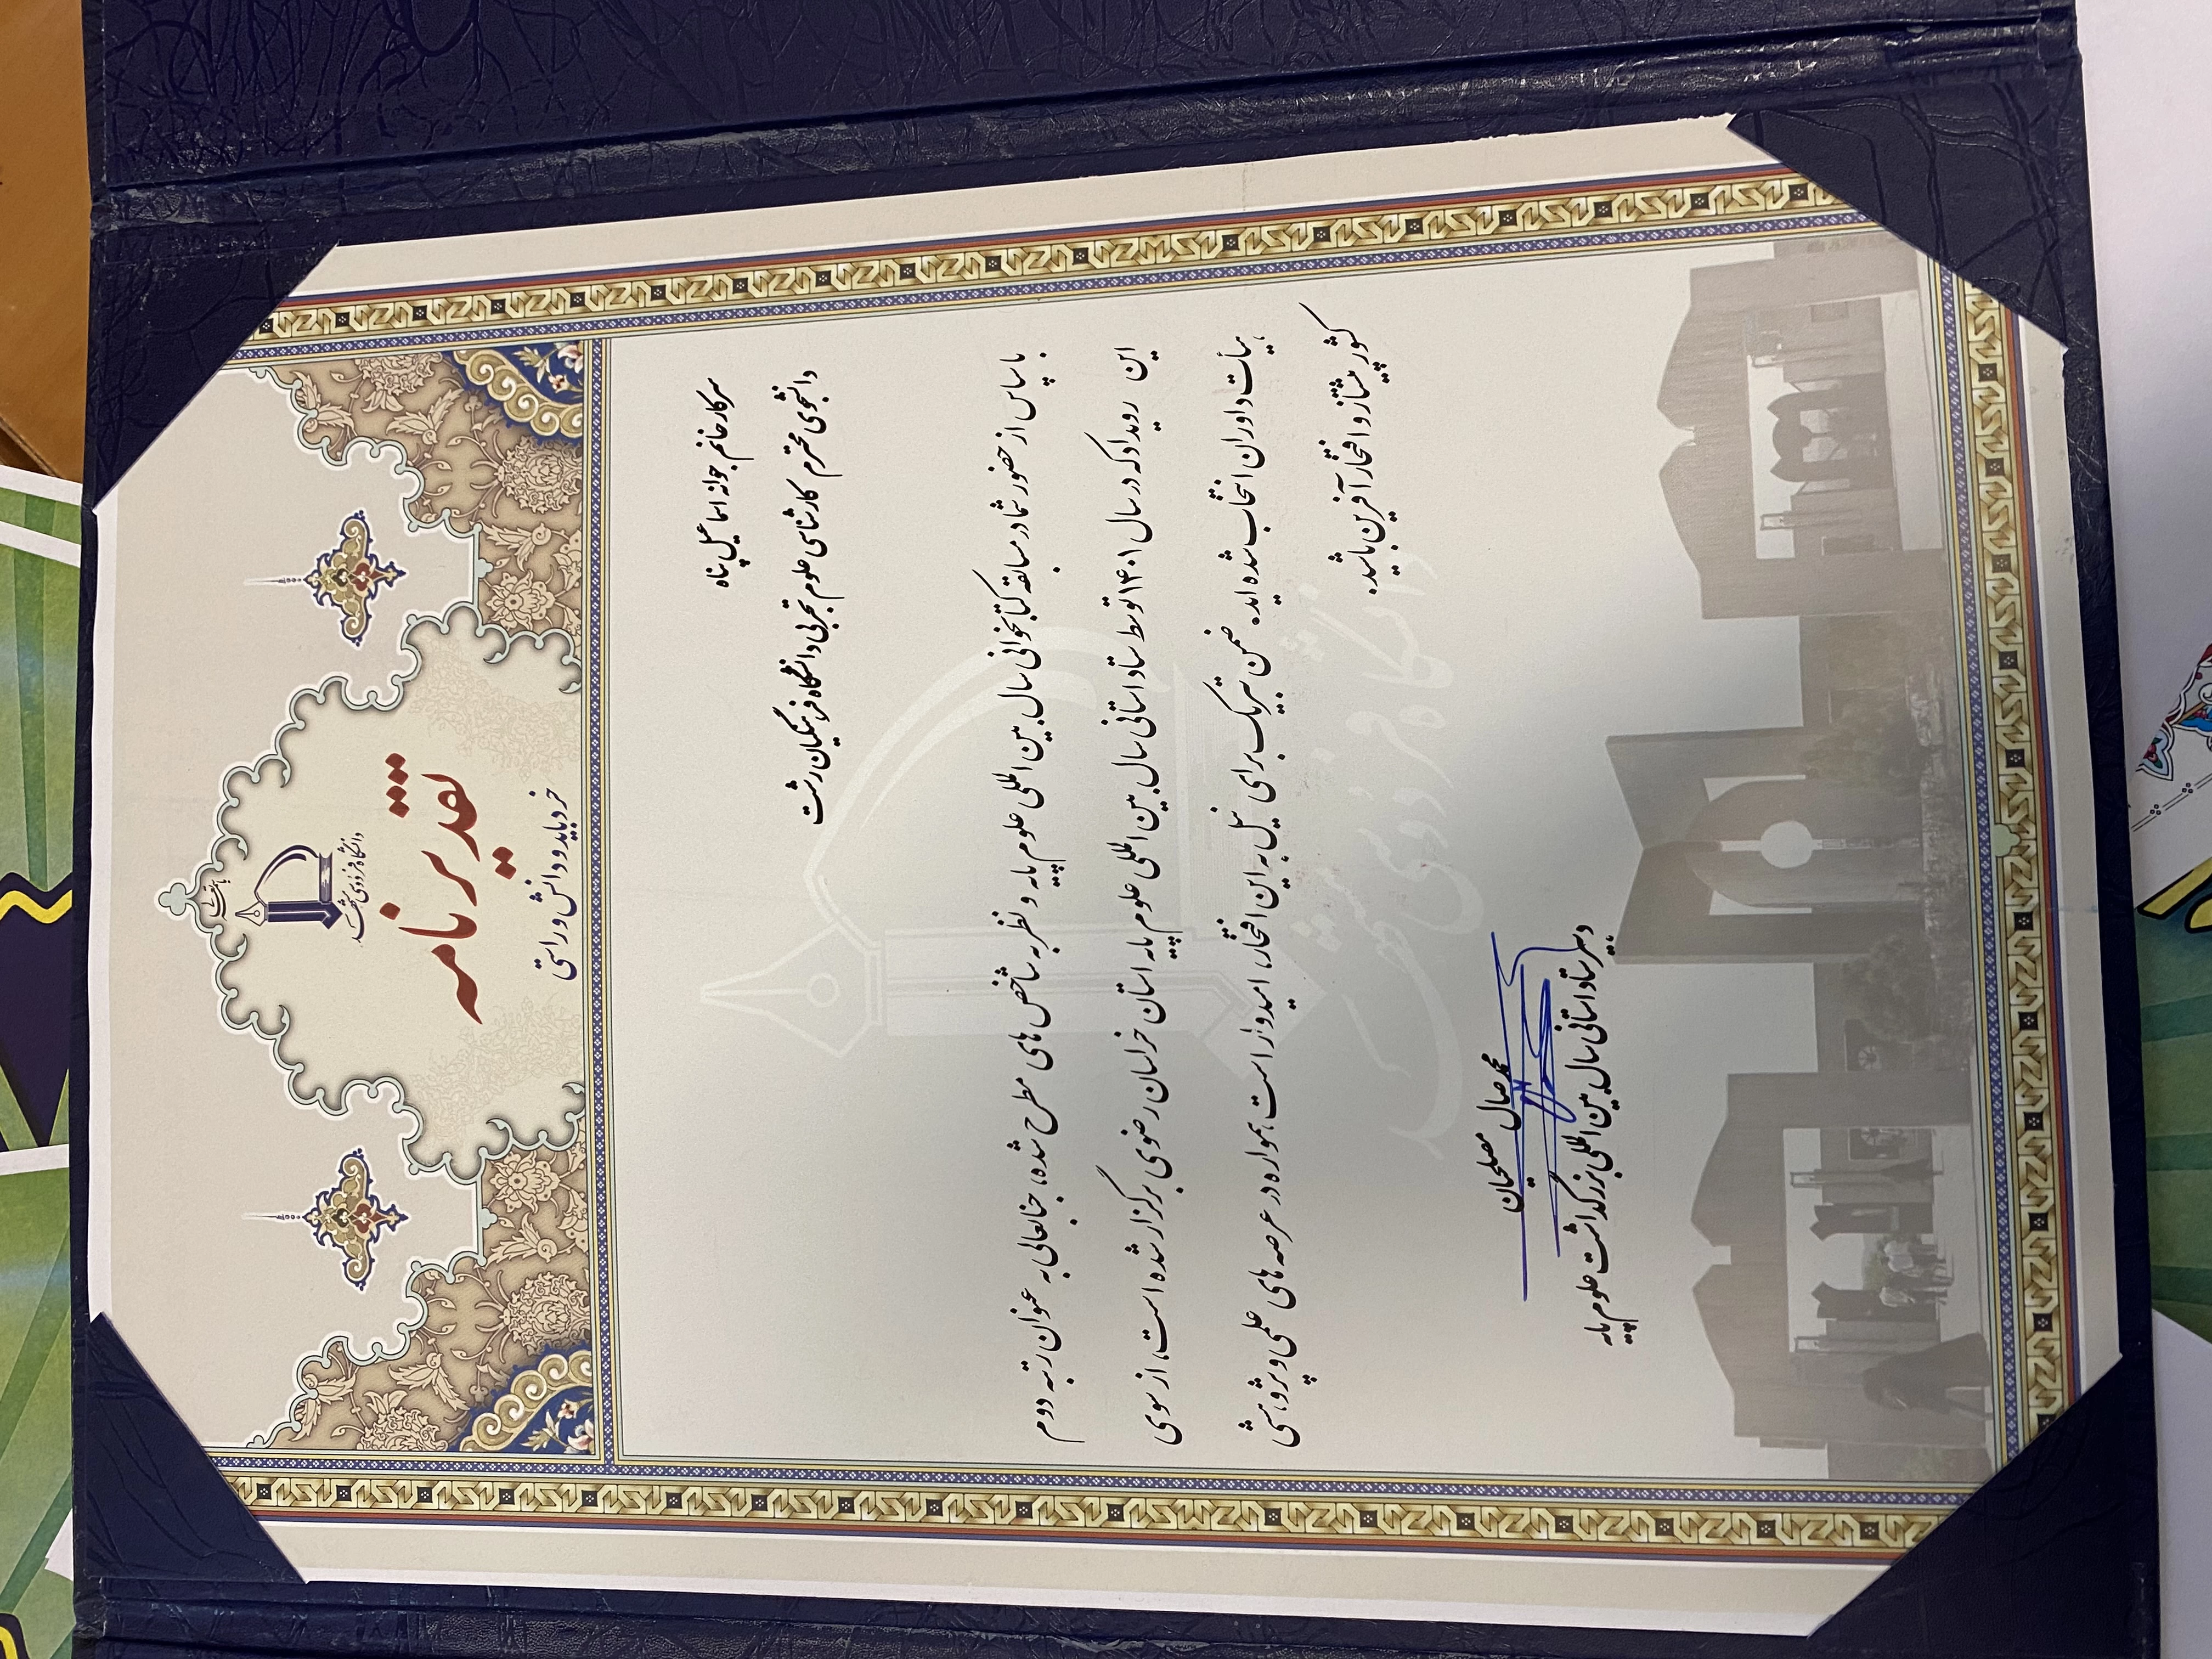 باسمه تعالی
دانشگاه فردوسی مشهد
تقدیرنامه
خرد باید و دانش و راستی
سرکار خانم جوانه اسماعیل پناه
دانشجوی محترم کارشناسی علوم تجربی دانشگاه فرهنگیان رشت
با سپاس از حضور شما در مسابقه کتابخوانی سال بین المللی علوم پایه و نظر به شاخص های مطرح شده، جنابعالی به عنوان رتبه دوم
این رویداد که در سال ۱۴۰۱ توسط ستاد استانی سال بین المللی علوم پایه استان خراسان رضوی برگزار شده است، از سوی
هیأت داوران انتخاب شده اید. ضمن تبریک برای نیل به این افتخار، امیدوار است همواره در عرصه های علمی و پژوهشی
کشور پیشتاز و افتخارآفرین باشید.
محمد صال مصلحیان
دبیر ستاد استانی سال بین المللی بزرگداشت علوم پایه
دانشگاه فردوسی مشهد